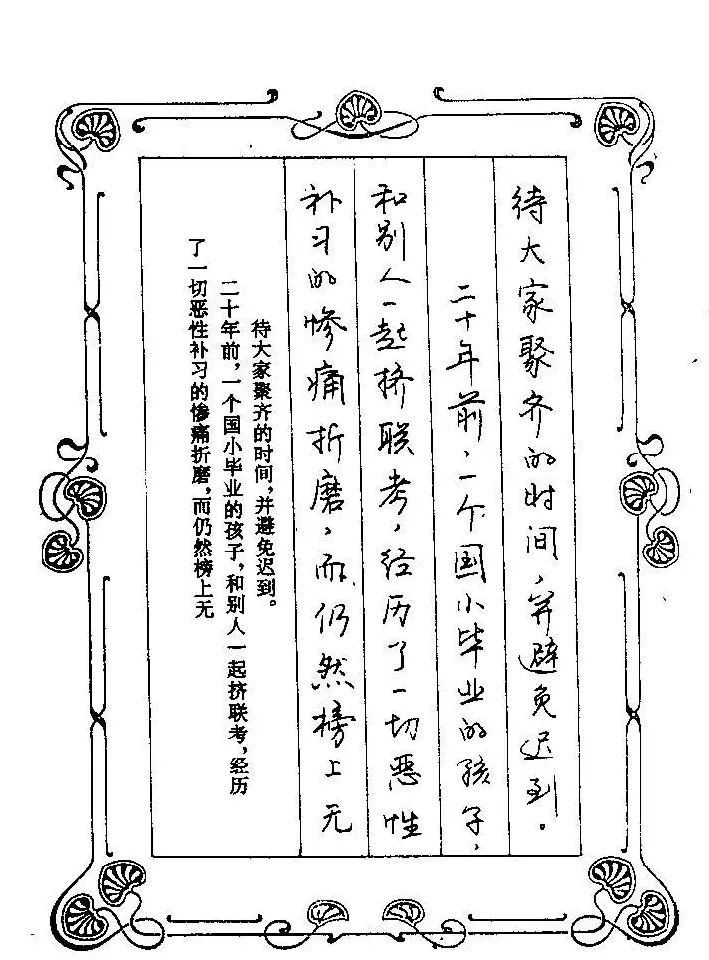 待大家聚齐的时间，并避免迟到。
二十年前，一个国小毕业的孩子，
和别人一起挤联考，经历了一切恶性
补习的惨痛折磨，而仍然榜上无
待大家聚齐的时间，并避免迟到。
二十年前，一个国小毕业的孩子，和别人一起挤联考，经历
了一切恶性补习的惨痛折磨，而仍然榜上无